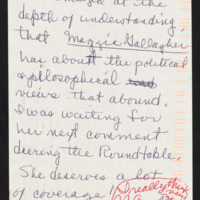 at the
depth of understanding
that Maggie Gallagher
has about the political
& philosophical
views that abound.
I was waiting for
her next comment
during the Roundtable.
She deserves a lot
of coverage!
I really think